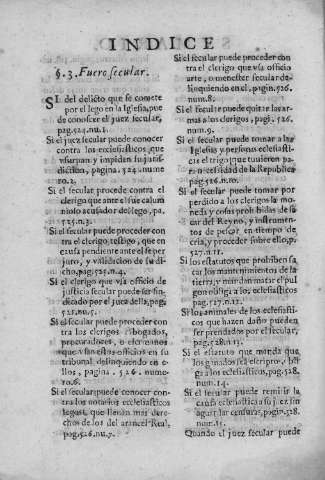 INDICE
§. 3. Fuero secular.
SI del delicto que se comete
por el lego en la Iglesia, pue
de conoscer el juez secular,
pag. 524. nu. 1.
Si el juez secular puede conocer
contra los ecclesiasticos, que
vsurpan y impiden su jurisdi-
ction, pagina, 524. nume
ro. 2.
Si el secular procede contra el
clerigo que ante el fue calum
nioso acusador del lego, pa.
525. n. 3.
Si el secular puede proceder con
tra el clerigo testigo, que en
causa pendiente ante el se per
juro, y validacion de su di-
cho, pag. 525. n. 4.
Si el clerigo que vsa officio de
justicia secular puede ser sin
dicado por el juez della, pag.
525. nu. 5.
Si el secular puede proceder con
tra los clerigos abogados,
procuradores, o escriuanos
que vsan estos officios en su
tribunal delinquiendo en e-
llos, pagina, 526. nume-
ro. 6.
Si el secular puede conocer con-
tra los notarios ecclesiasticos
legos, que lleuan mas dere-
chos de los del arancel Real,
pag. 526. nu. 7.
Si el secular puede proceder con
tra el clerigo que vsa officio
arte, o menester secular de-
linquiendo en el, pagin. 526.
num. 8.
Si el secular puede quitar las ar-
mas a los clerigos, pagi. 526.
num. 9.
Si el secular puede tomar a las
Iglesias y personas ecclesiasti-
cas el trigo que tuuieren pa-
ra necessidad de la Republica
pag. 526. n. 10.
Si el secular puede tomar por
perdido a los clerigos la mo-
neda y cosas prohibidas de sa-
car del Reyno, y instrumen-
tos de pescar en tiempo de
cria, y proceder sobre ello, p.
527. n. 11.
Si los estatutos que prohiben sa
car los mantenimientos de la
tierra, y mandan matar el pul
gon obliga a los ecclesiasticos
pag. 527. n. 12.
Si los animales de los ecclesiasti-
cos que hazen daño pueden
ser prendados por el secular,
pag. 528. n. 13.
Si el estatuto que manda que
los ganados se acierten, obli
ga a los ecclesiasticos, pag. 528.
num. 14.
Si el secular puede remitir la
causa ecclesiastica a su juez sin
aguardar censuras, pagin. 528.
num. 15.
Quando el juez secular puede